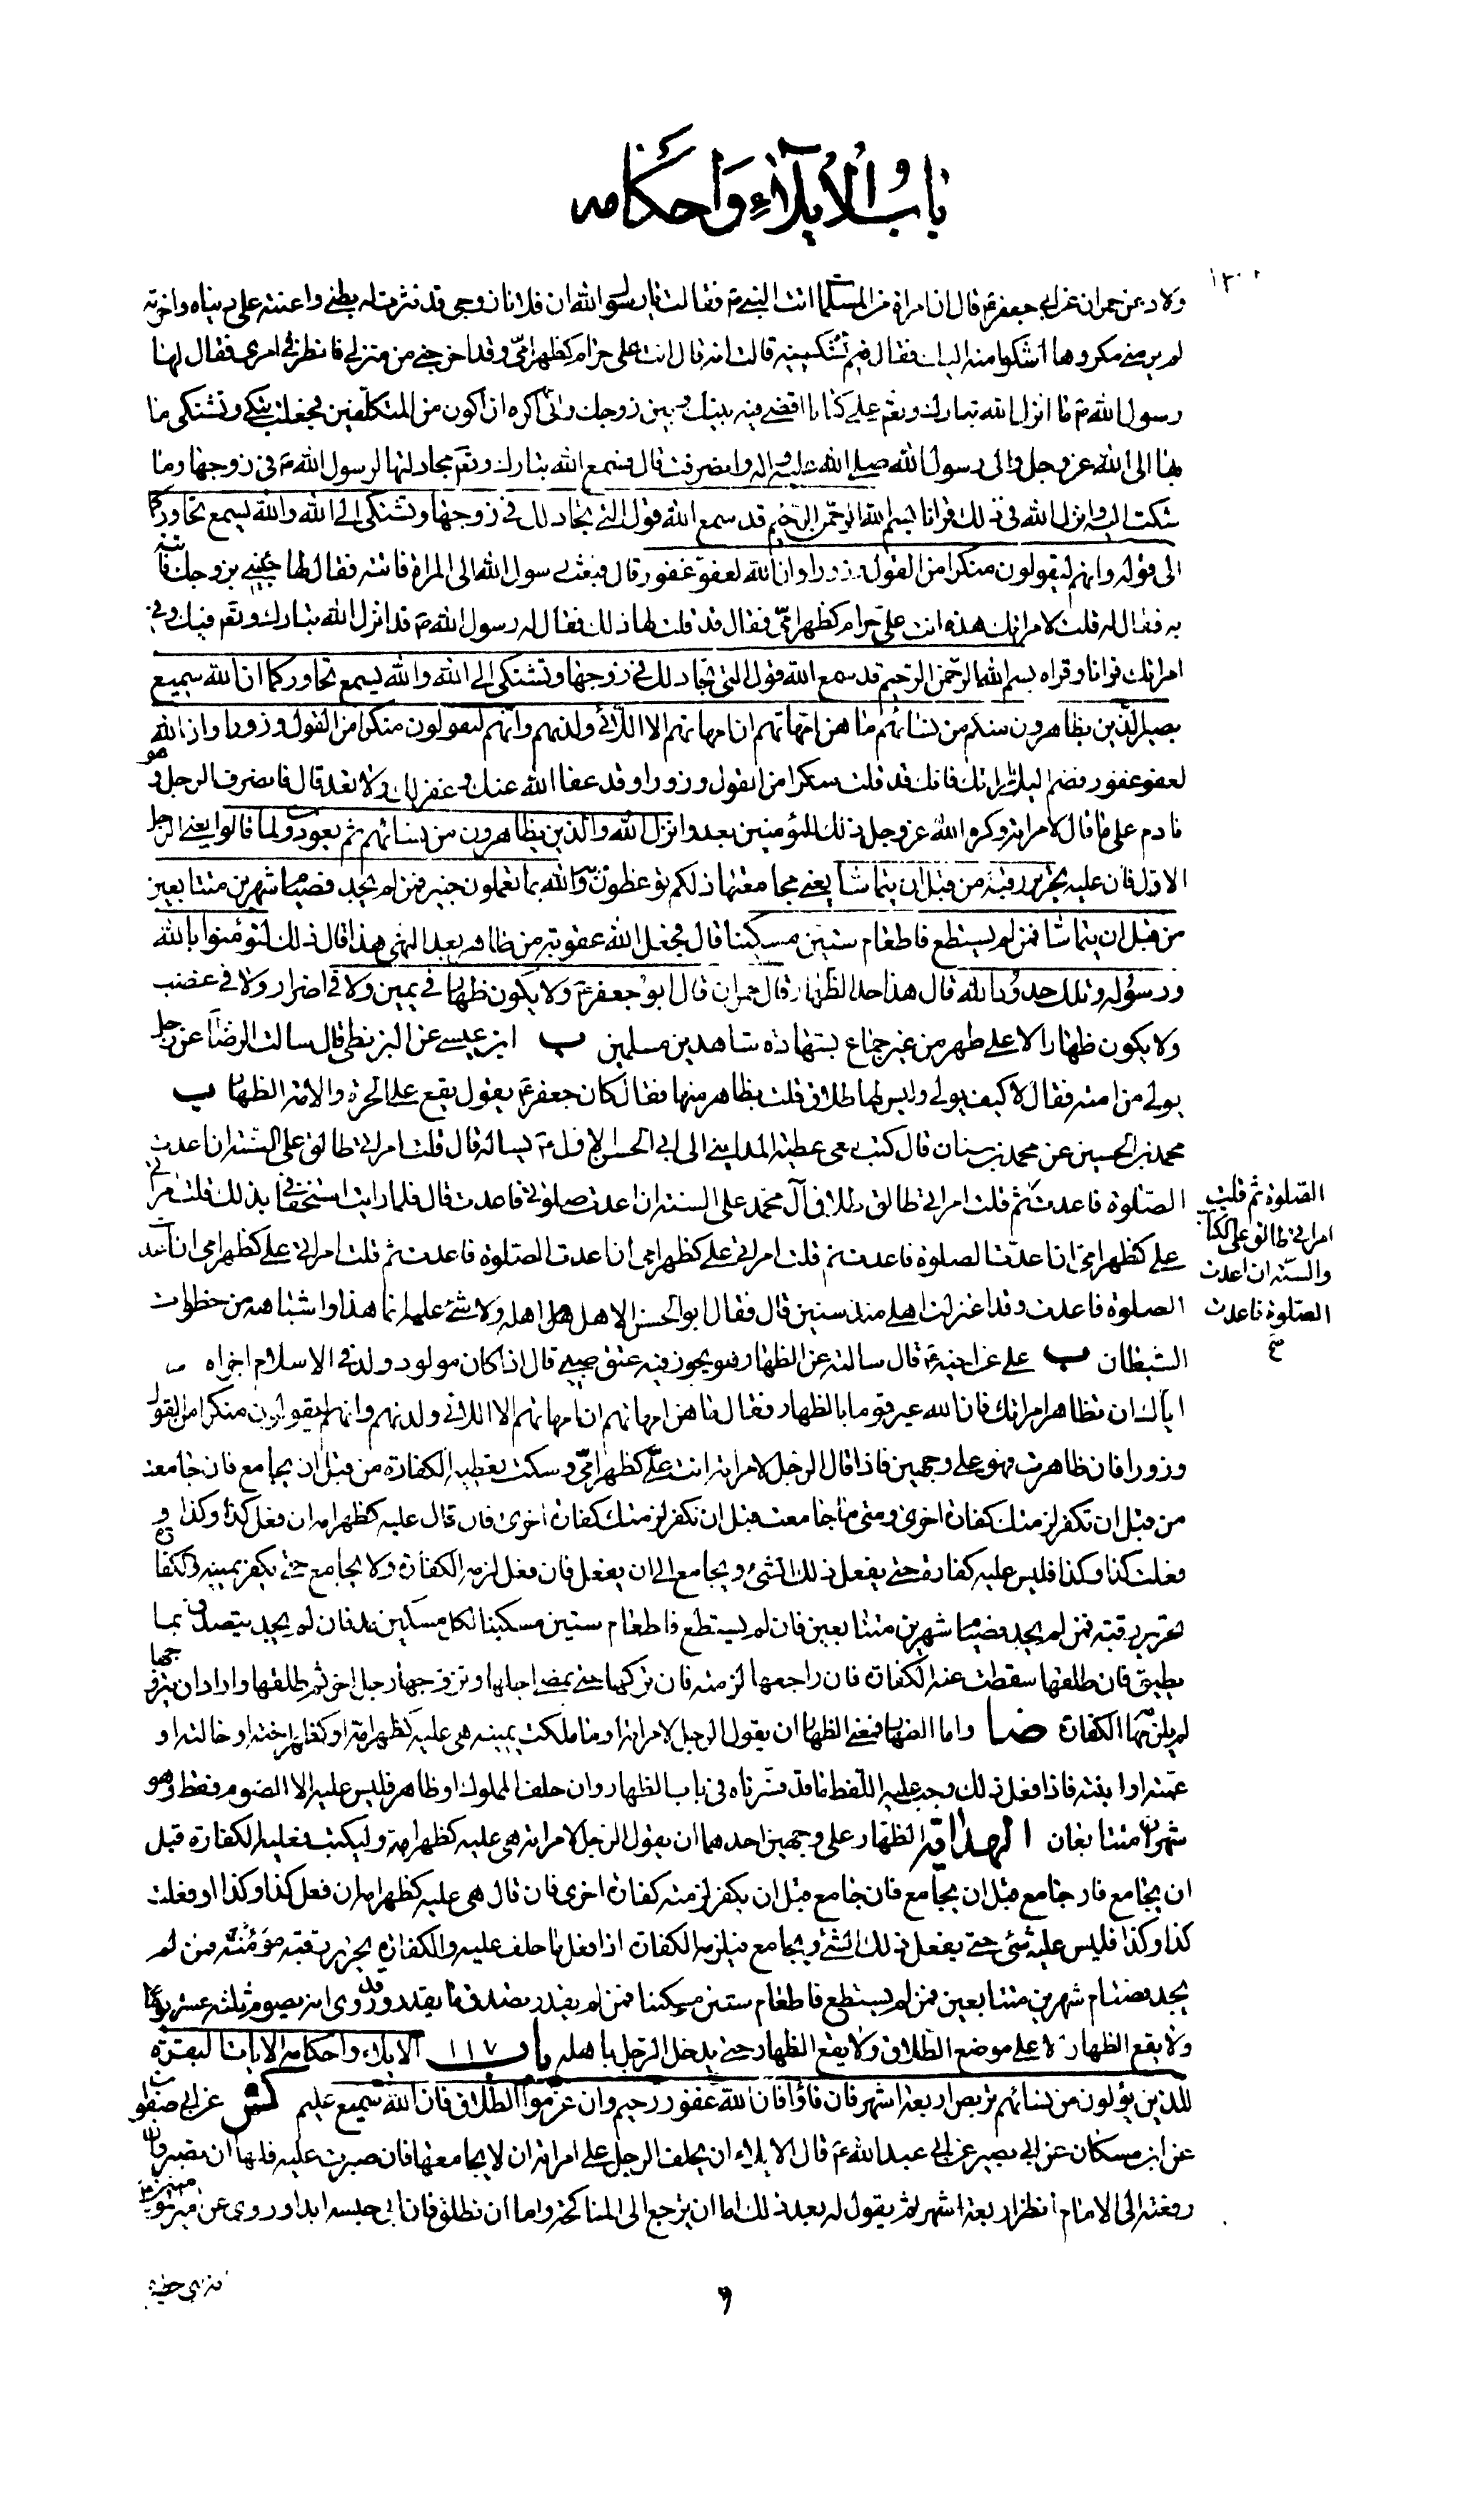 باب الايلاء واحكامه
ولاد عن حمران عن ابي جعفر ع قال ان امراة من المسلمات اتت النبي ص فقالت يا رسول الله ان فلانا زوجي قد نثرت له بطني واعنته على دنياه واخرته
لم ير مني مكروها اشكوا منه اليك فقال فيم تشكينه قالت انه قال انت علي حرام كظهر امي وقد اخرجني من منزلي فانظر في امري فقال لها
رسول الله ص ما انزل الله تبارك وتعم علي كتابا اقضي فيه بينك وبين زوجك واني اكره ان اكون من المتكلفين فجعلت تبكي وتشتكي ما
بها الى الله عز وجل والى رسول الله صلى الله عليه واله وانصرفت قال فسمع الله تبارك وتعم مجادلتها لرسول الله ص في زوجها وما
شكت اليه وانزل الله في ذلك قرانا بسم الله الرحمن الرحيم قد سمع الله قول التي تجادلك في زوجها وتشتكي الى الله والله يسمع تحاوركما
الى قوله وانهم ليقولون منكرا من القول وزورا وان الله لعفو غفور قال فبعث رسول الله الى المراة فاتته فقال لها جيئيني بزوجك فاتته
به فقال له قلت لامراتك هذه انت علي حرام كظهر امي فقال قد قلت لها ذلك فقال له رسول الله ص قد انزل الله تبارك وتعم فيك وفي
امراتك قرانا وقراه بسم الله الرحمن الرحيم قد سمع الله قول التي تجادلك في زوجها وتشتكي الى الله والله يسمع تحاوركما ان الله سميع
بصير الذين يظاهرون منكم من نسائهم ما هن امهاتهم ان امهاتهم الا اللائي ولدنهم وانهم ليقولون منكرا من القول وزورا وان الله
لعفو غفور فضم اليك امراتك فانك قد قلت منكرا من القول وزورا وقد عفا الله عنك وغفر لك ولا تعد قال فانصرف الرجل وهو
نادم على ما قال لامراته وكره الله عز وجل ذلك للمؤمنين بعد وانزل الله والذين يظاهرون من نسائهم ثم يعودون لما قالوا يعني الرجل
الاول فان عليه تحرير رقبة من قبل ان يتماسا يعني مجامعتها ذلكم توعظون به والله بما تعملون خبير فمن لم يجد فصيام شهرين متتابعين
من قبل ان يتماسا فمن لم يستطع فاطعام ستين مسكينا قال فجعل الله عقوبة من ظاهر بعد النهي هذا قال ذلك لتؤمنوا بالله
ورسوله وتلك حدود الله قال هذا حد الظهار قال حمران قال ابو جعفر ع ولا يكون ظهار في يمين ولا في اضرار ولا في غضب
ولا يكون ظهارا الا على طهر من غير جماع بشهادة شاهدين مسلمين ب ابن عيسى عن البزنطي قال سالت الرضا ع عن رجل
يولي من امته فقال لا كيف يولي وليس لها طلاق قلت يظاهر منها فقال كان جعفر ع يقول يقع على الحرة والامة الظهار ب
محمد بن الحسين عن محمد بن سنان قال كتب معي عطية المدايني الى ابي الحسن الاول ع يساله قال قلت امراتي طالق على السنة ان اعدت
الصلوة فاعدت ثم قلت امراتي طالق طلاق آل محمد على السنة ان اعدت صلوتي فاعدت قال فلما رايت استخفافي بذلك قلت امراتي
علي كظهر امي ان اعدت الصلوة فاعدت ثم قلت امراتي علي كظهر امي ان اعدت الصلوة فاعدت ثم قلت امراتي علي كظهر امي ان اعدت
الصلوة فاعدت وقد اعتزلت اهلي منذ سنين قال فقال ابو الحسن الاهل اهله ولا شئ عليه انما هذا واشباهه من خطوات
الشيطان ب علي عن اخيه ع قال سالته عن الظهار هو يجوز فيه عتق صبي قال اذا كان مولود ولد في الاسلام اجزاه
الصلوة ثم قلت
امراتي طالق على الكتاب
والسنة ان اعدت
الصلوة فاعدت
صح
اياك ان تظاهر امراتك فان الله عير قوما بالظهار فقال ما هن امهاتهم ان امهاتهم الا اللائي ولدنهم وانهم ليقولون منكرا من القول
وزورا فان ظاهرت فهو على وجهين فاذا قال الرجل لامراته انت علي كظهر امي وسكت فعليه الكفارة من قبل ان يجامع فان جامعت
من قبل ان تكفر لزمتك كفارة اخرى ومتى ما جامعت قبل ان تكفر لزمتك كفارة اخرى فان قال عليه كظهر امه ان فعل كذا وكذا و
فعلت كذا وكذا فليس عليه كفارة حتى يفعل ذلك الشئ ويجامع الى ان يفعل فان فعل لزمه الكفارة ولا يجامع حتى يكفر يمينه والكفارة
تحرير رقبة فمن لم يجد فصيام شهرين متتابعين فان لم يستطع فاطعام ستين مسكينا لكل مسكين مد فان لم يجد يتصدق بما
يطيق فان طلقها سقطت عنه الكفارة فان راجعها لزمته فان تركها حتى يمضي اجلها وتزوجها رجل اخر ثم طلقها واراد ان يتزوجها
لم يلزمه الكفارة ضا واما الظهار فمعنى الظهار ان يقول الرجل لامراته او ما ملكت يمينه هي عليه كظهر امه او كظهر اخته او خالته او
عمته او ابنته فاذا فعل ذلك وجب عليه اللفظ ما قد فسرناه في باب الظهار وان حلف المملوك او ظاهر فليس عليه الا الصوم فقط وهو
شهران متتابعان الهداية الظهار على وجهين احدهما ان يقول الرجل لامراته هي عليه كظهر امه وليكت فعليه الكفارة قبل
ان يجامع فان جامع قبل ان يجامع فان جامع قبل ان يكفر لزمته كفارة اخرى فان قال هي عليه كظهر امه ان فعل كذا وكذا او فعلت
كذا وكذا فليس عليه شئ حتى يفعل ذلك الشئ ويجامع فيلزمه الكفارة اذا فعل ما حلف عليه والكفارة تحرير رقبة مؤمنة فمن لم
يجد فصيام شهرين متتابعين فمن لم يستطع فاطعام ستين مسكينا فمن لم يقدر تصدق ما يقدر وقد روي انه يصوم ثلثة عشر يوما
ولا يقع الظهار الا على موضع الطلاق ولا يقع الظهار حتى يدخل الرجل باهله باب ١١٧ الايلاء واحكامه الايات البقرة
للذين يؤلون من نسائهم تربص اربعة اشهر فان فاؤا فان الله غفور رحيم وان عزموا الطلاق فان الله سميع عليم كش عن ابي صفوان
عن ابن مسكان عن ابي بصير عن ابي عبد الله ع قال الايلاء ان يحلف الرجل على امراته ان لا يجامعها فان صبرت عليه فلها ان تصبر وان
رفعته الى الامام انظر اربعة اشهر ثم يقول له بعد ذلك اما ان ترجع الى المناكحة واما ان تطلق فان ابى حبسه ابدا وروي عن امير المؤمنين